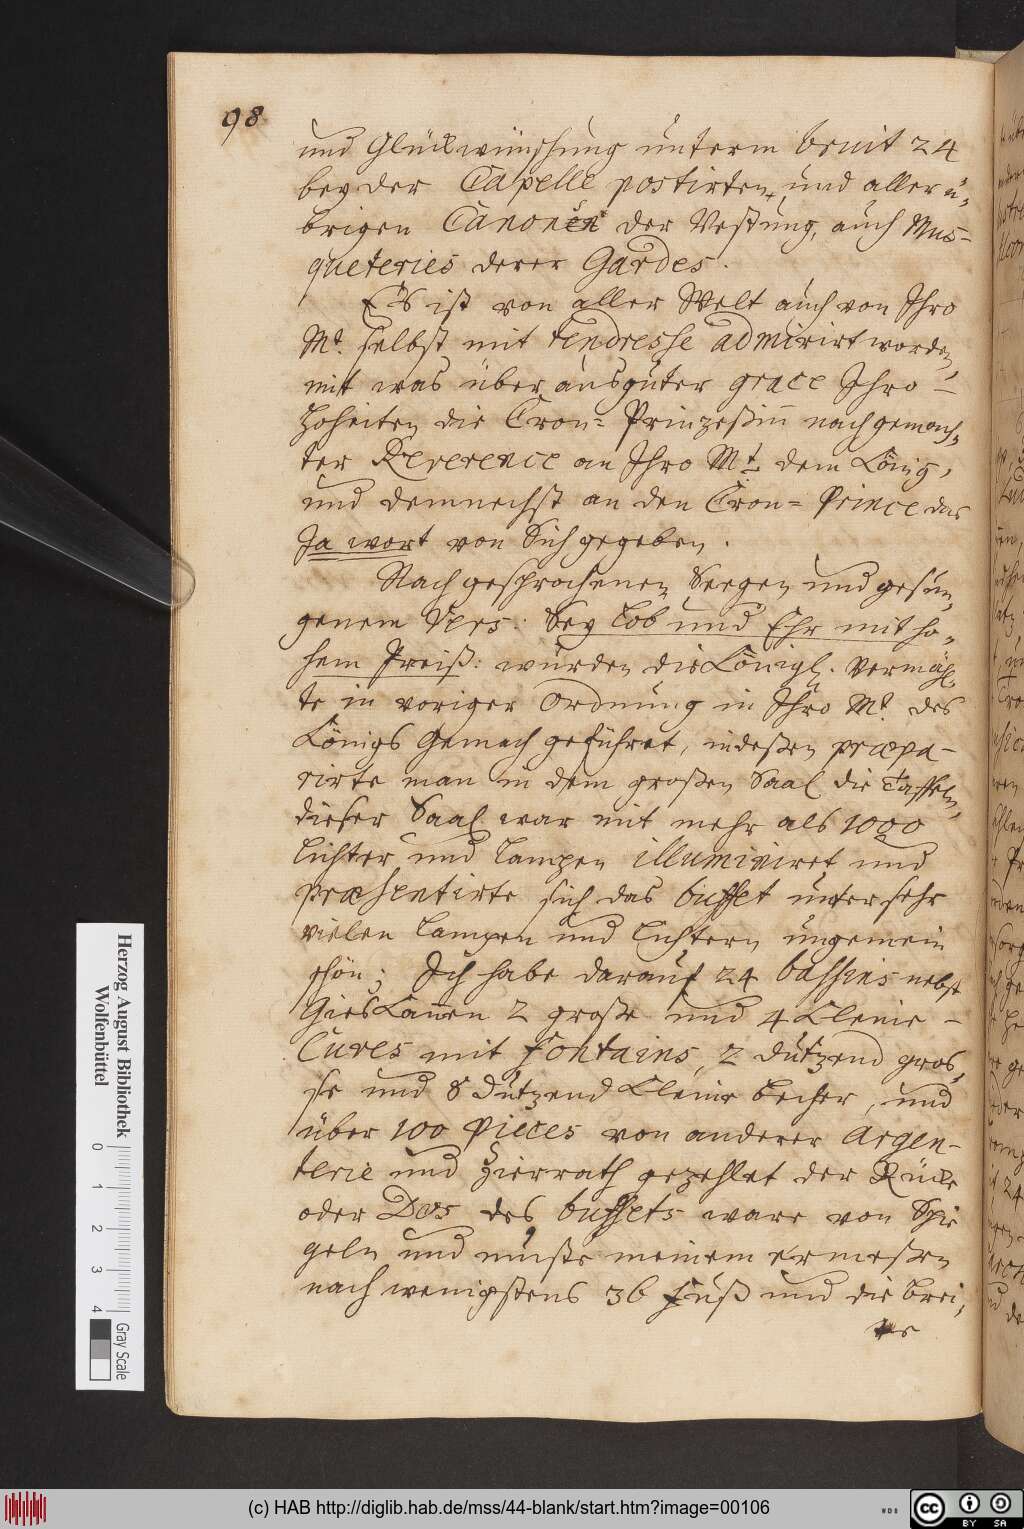 98
und Glückwünschung unterm bruit 24
bey der Capelle postirten, und aller ü-
brigen Canonen der Vestung, auch Mus-
queteries derer Gardes.
Es ist von aller Welt auch von Ihro
Mt. selbst mit tendresse admirirt worden,
mit was über ausguter grace Ihro
Hoheiten die Cron= Prinzeßin nach gemach-
ter Reverence an Ihro Mt. dem König,
und demnechst an den Cron= Prince das
Ja wort von Sich gegeben.
Nach gesprochenen Seegen und gesun-
genem Vers: Sey Lob und Ehr mit ho-
hem Preiß: wurden die Königl. Vermäh-
te in voriger Ordnung in Ihro Mt. des
Königs Gemach geführet, indeßen præpa-
rirte man in dem großen Saal die Taffeln,
dieser Saal war mit mehr als 1000
Lichter und Lampen illuminiret und
præsentirte sich das buffet unter sehr
vielen Lampen und Lichtern ungemein
schön; Ich habe darauf 24 bassins nebst
GiesKannen 2 große und 4 Kleine
Cuves mit fontains, 2 dutzend gros-
se und 8 dutzend Kleine becher, und
über 100 pieces von anderer Argen-
terie und Zierrath gezehlet der Rücke
oder Dos des buffets ware von Spie
geln und muste meinem ermeßen
nach wenigstens 36 fuß und die brei-
te
Herzog August Bibliothek
Wolfenbüttel
0 1 2 3 4
Gray Scale
(c) HAB http://diglib.hab.de/mss/44-blank/start.htm?image=00106
WDB
cc BY SA